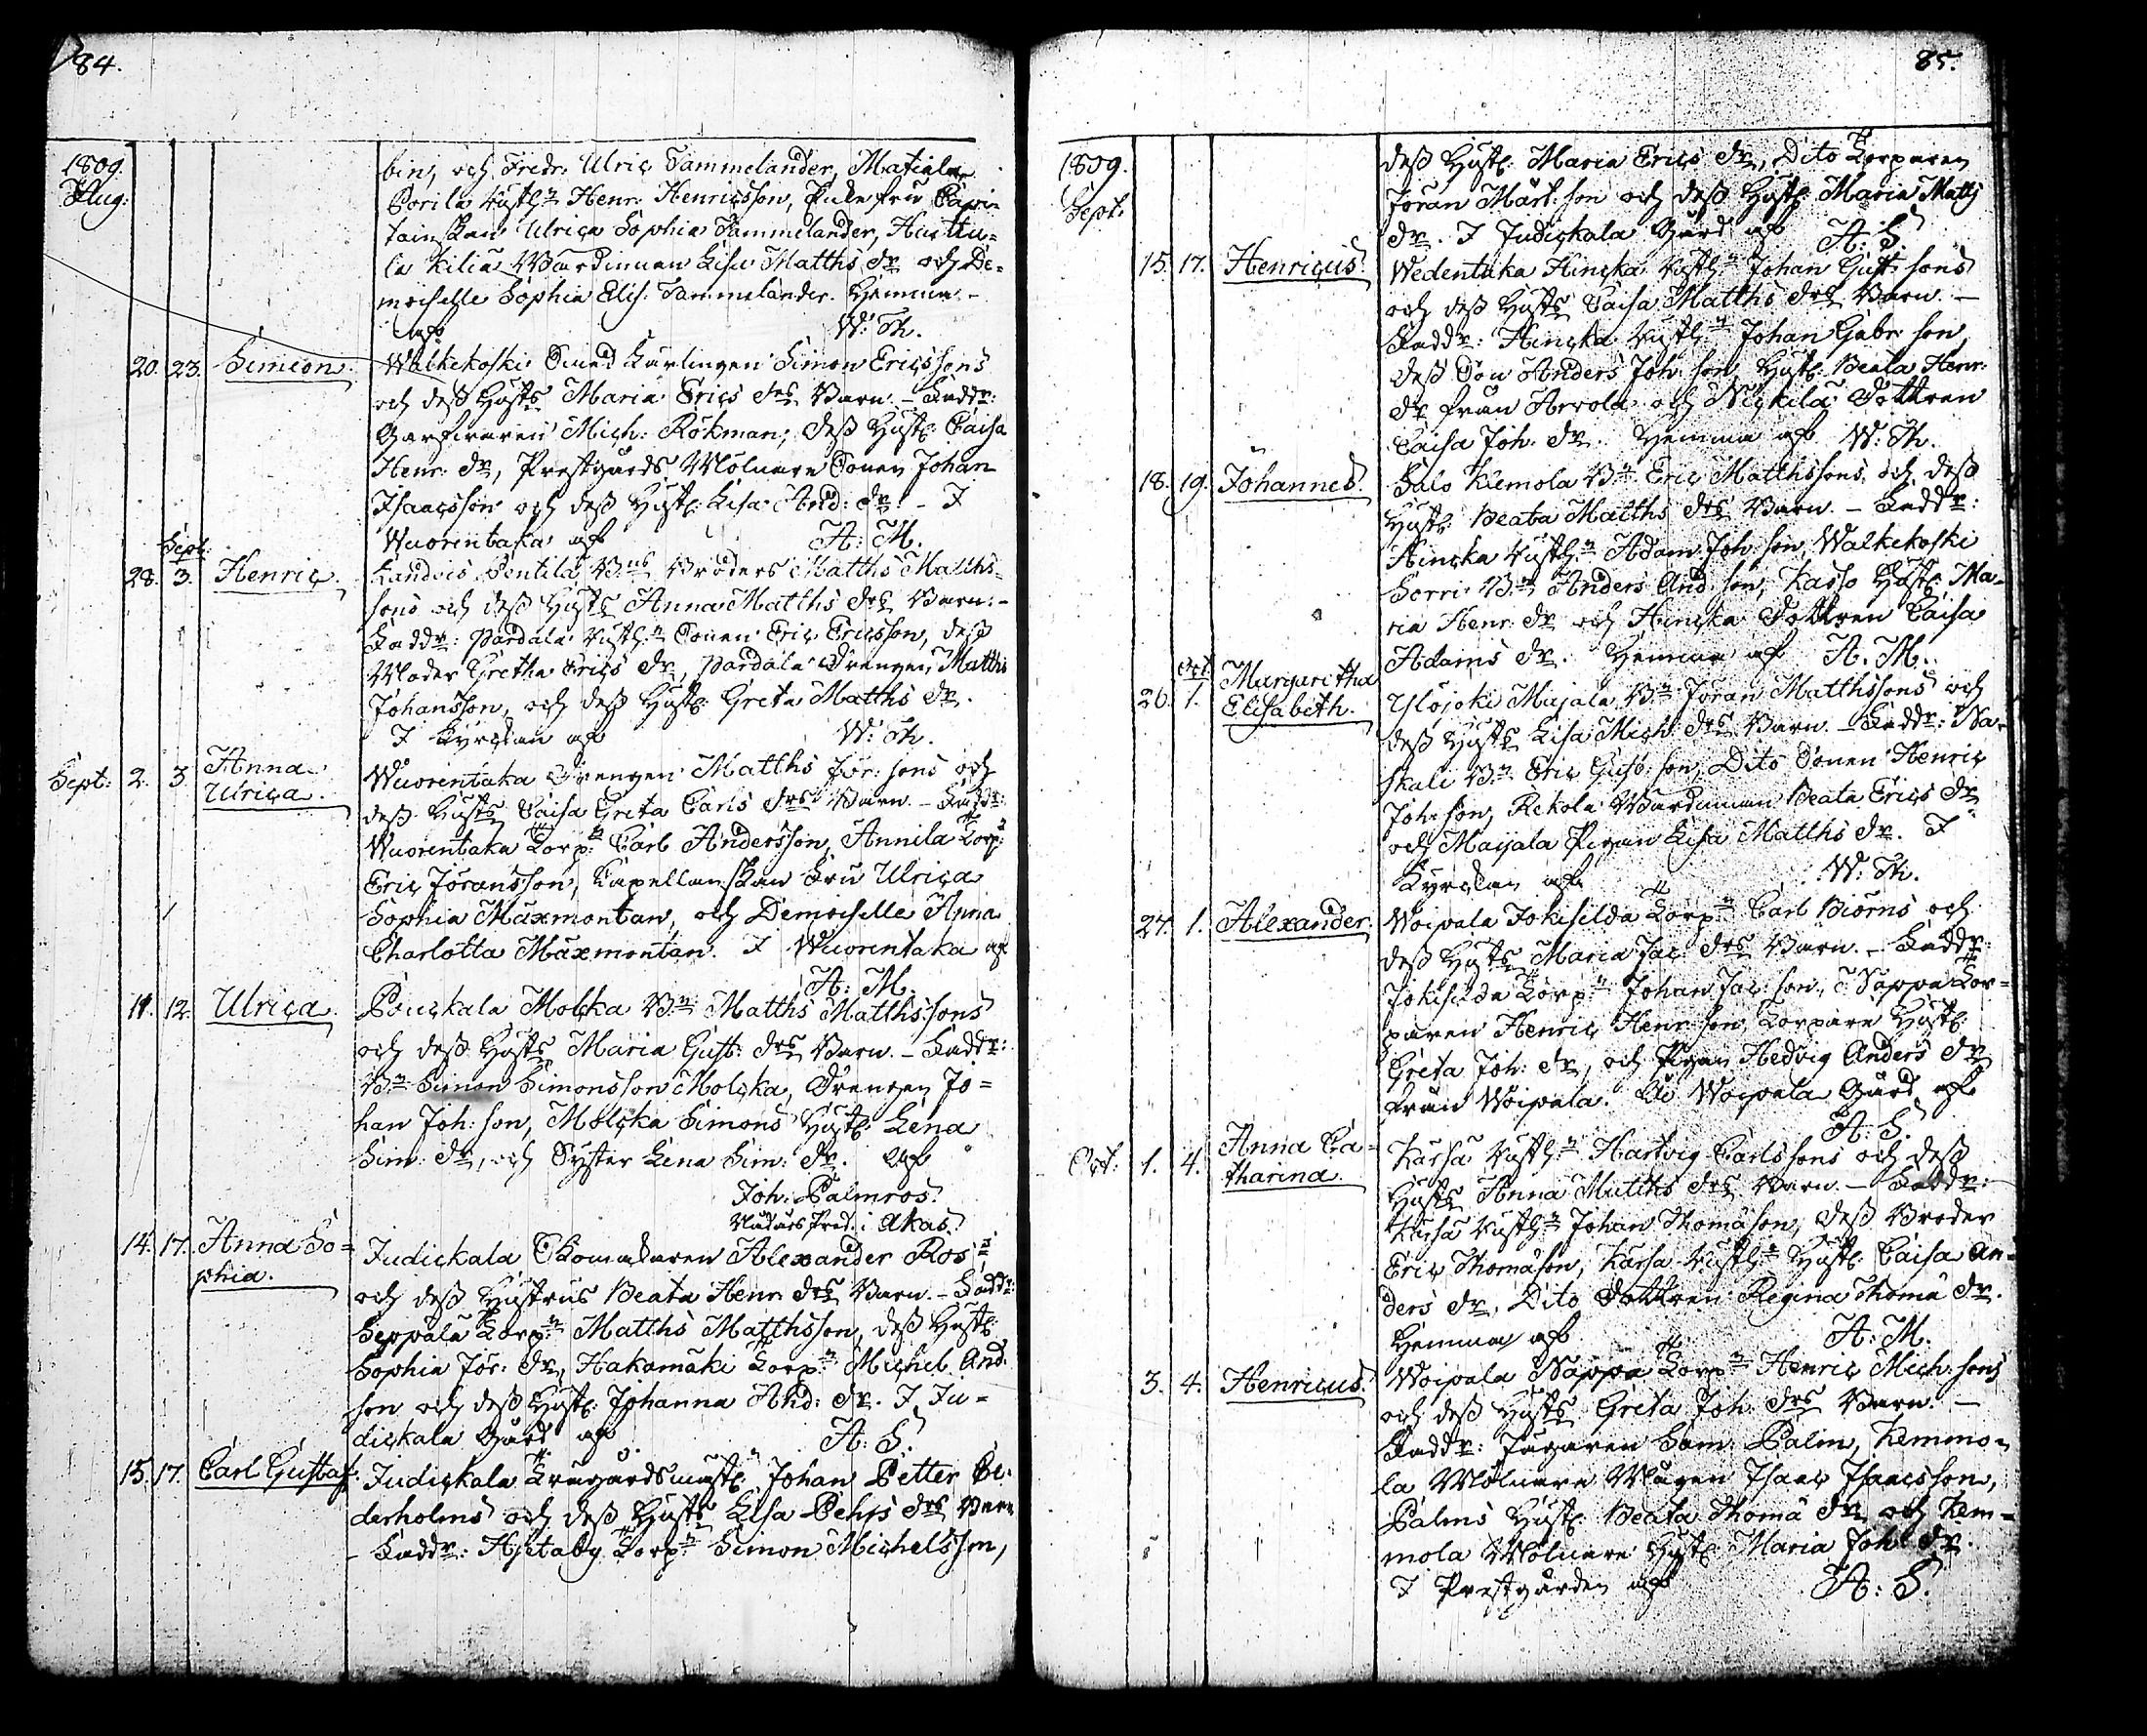 84.
1809.
Aug:
bin, och Fredr: Ulric Tammelander, Matiala
Porila Rusth:n Henr: Henricsson, Fru Capi-
tainskan Ulrica Sophia Tammelander, Huttu-
la Kilia Wärdinnan Lisa Matths dr och De-
moiselle Sophia Elis: Tammelander. Hemma
af W: Th.
20. 23. Simeon.
Walkekoski Smed Lärlingen Simon Ericssons
och dess Hustrs Maria Erics drs Barn. - Faddr:
Garfvaren Mich: Rökman, dess Hust: Caisa
Henr: dr, Prestgårds Mölnare Sonen Johan
Isaacsson och dess Hust: Lisa And: dr. - I
Wuorentaka af A: M.
Sept:
28. 3. Henric.
Kandois Pentila B:ns Broders Matths Matths-
sons och dess Hustrs Anna Matths drs Barn. -
Faddr: Pardala Rusth:n Sonen Eric Ericsson, dess
Moder Gretha Erics dr, Pardala Drengen Matths
Johansson, och dess Hust: Greta Matths dr.
I Kyrckan af W: Th.
Sept: 2. 3. Anna
Ulrica.
Wuorentaka Drengen Matths Jör: sons och
dess Hustrs Caisa Greta Carls drs Barn. - Faddr:
Wuorentaka Torp:n Carl Andersson, Annila Torp:n
Eric Jöransson, Kapellanskan Fru Ulrica
Sophia Maxmontan, och Demoiselle Anna
Charlotta Maxmontan. I Wuorentaka af
A: M.
11. 12. Ulrica.
Pouckala Molcka B:n Matths Matthssons
och dess Hustrs Maria Gust: drs Barn. - Faddr:
B:n Simon Simonsson Molcka, Drengen Jo=
han Joh: son, Molcka Simons Hust: Lena
Sim: dr, och Syster Lena Sim: dr. af
Joh: Palmros.
Pred: i Akas.
14. 17. Anna So=
phia.
Judickala Skomakaren Alexander Ros:s
och dess Hustrus Beata Henr: drs Barn. - Faddr:
Seppälä Torp:n Matths Matthsson, dess Hust:
Sophia Jör: dr, Hakamäki Torp:n Michel And:
son och dess Hust: Johanna And: dr. I Ju=
dickala Gård af A: S.
15. 17. Carl Gustaf.
Judickala Johan Petter Ce-
derholms och dess Hustrs Lisa Pehrs drs Barn
- Faddr: Hjetaby Torp:n Simon Michelsson,
85.
1809.
Sept:
dess Hust: Maria Erics dr, Dito Torparen
Jöran Märt: son och dess Hust: Maria Matts
dr. I Judickala Gård af A: S.
15. 17. Henricus.
Wedentaka Hincka Rusth:n Johan Gust: sons
och dess Hustrs Caisa Matths drs Barn. -
Faddr: Hincka Rusth:n Johan Gabr: son,
dess Son Anders Joh: son, Hust: Beata Henr:
dr från Arvola och Nickila Dottren
Caisa Joh: dr. Hemma af W: Th.
18. 19. Johannes.
Salo Kiemola B:n Eric Matthssons och dess
Hust: Beata Matths drs Barn. - Faddr:
Hincka Rusth:n Adam Joh: son, Walkekoski
Sorri B:n Anders And: son, Kasso Hust: Ma-
ria Henr: dr och Hincka Dottren Caisa
Adams dr. Hemma af A. M.
Oct.
26. 1. Margaretha
Elisabeth.
Ylöjoki Majala B:n Jöran Matthssons och
dess Hustrs Lisa Mich: drs Barn. - Faddr: Na-
skali B:n Eric Gust: son, Dito Sonen Henric
Joh: son, Rekola Wärdinnan Beata Erics dr
och Maijala Pigan Lisa Matths dr. I
Kyrckan af W: Th.
27. 1. Alexander
Woipala Jokisilda Torp:n Carl Biörns och
dess Hustrs Maria Jac: drs Barn. - Faddr:
Jokisilda Torp:n Johan Jac: son, Nappa Tor=
paren Henric Henr: son, Torpare Hust:
Greta Joh: dr, och Pigan Hedvig Anders dr
från Woipala. På Woipala Gård af
A: S.
Oct: 1. 4. Anna Ca=
tharina.
Karsa Rusth:n Hartvig Carlssons och dess
Hustrs Anna Matths drs Barn. - Faddr:
Karsa Rusth:n Johan Thomason, dess Broder
Eric Thomason, Karsa Rusth:n Hust: Caisa An-
ders dr, Dito Dottren Regina Thoma dr.
Hemma af A: M.
3. 4. Henricus.
Woipala Nappa Torp:n Henric Mich: sons
och dess Hustrs Greta Joh: drs Barn. -
Faddr: Jägaren Sam: Palm, Kemmo-
la Mölnare Mågen Isaac Isaacsson,
Palms Hust: Beata Thoma dr och Kem-
mola Mölnare Hust: Maria Joh: dr.
I Prestgården af A: S.